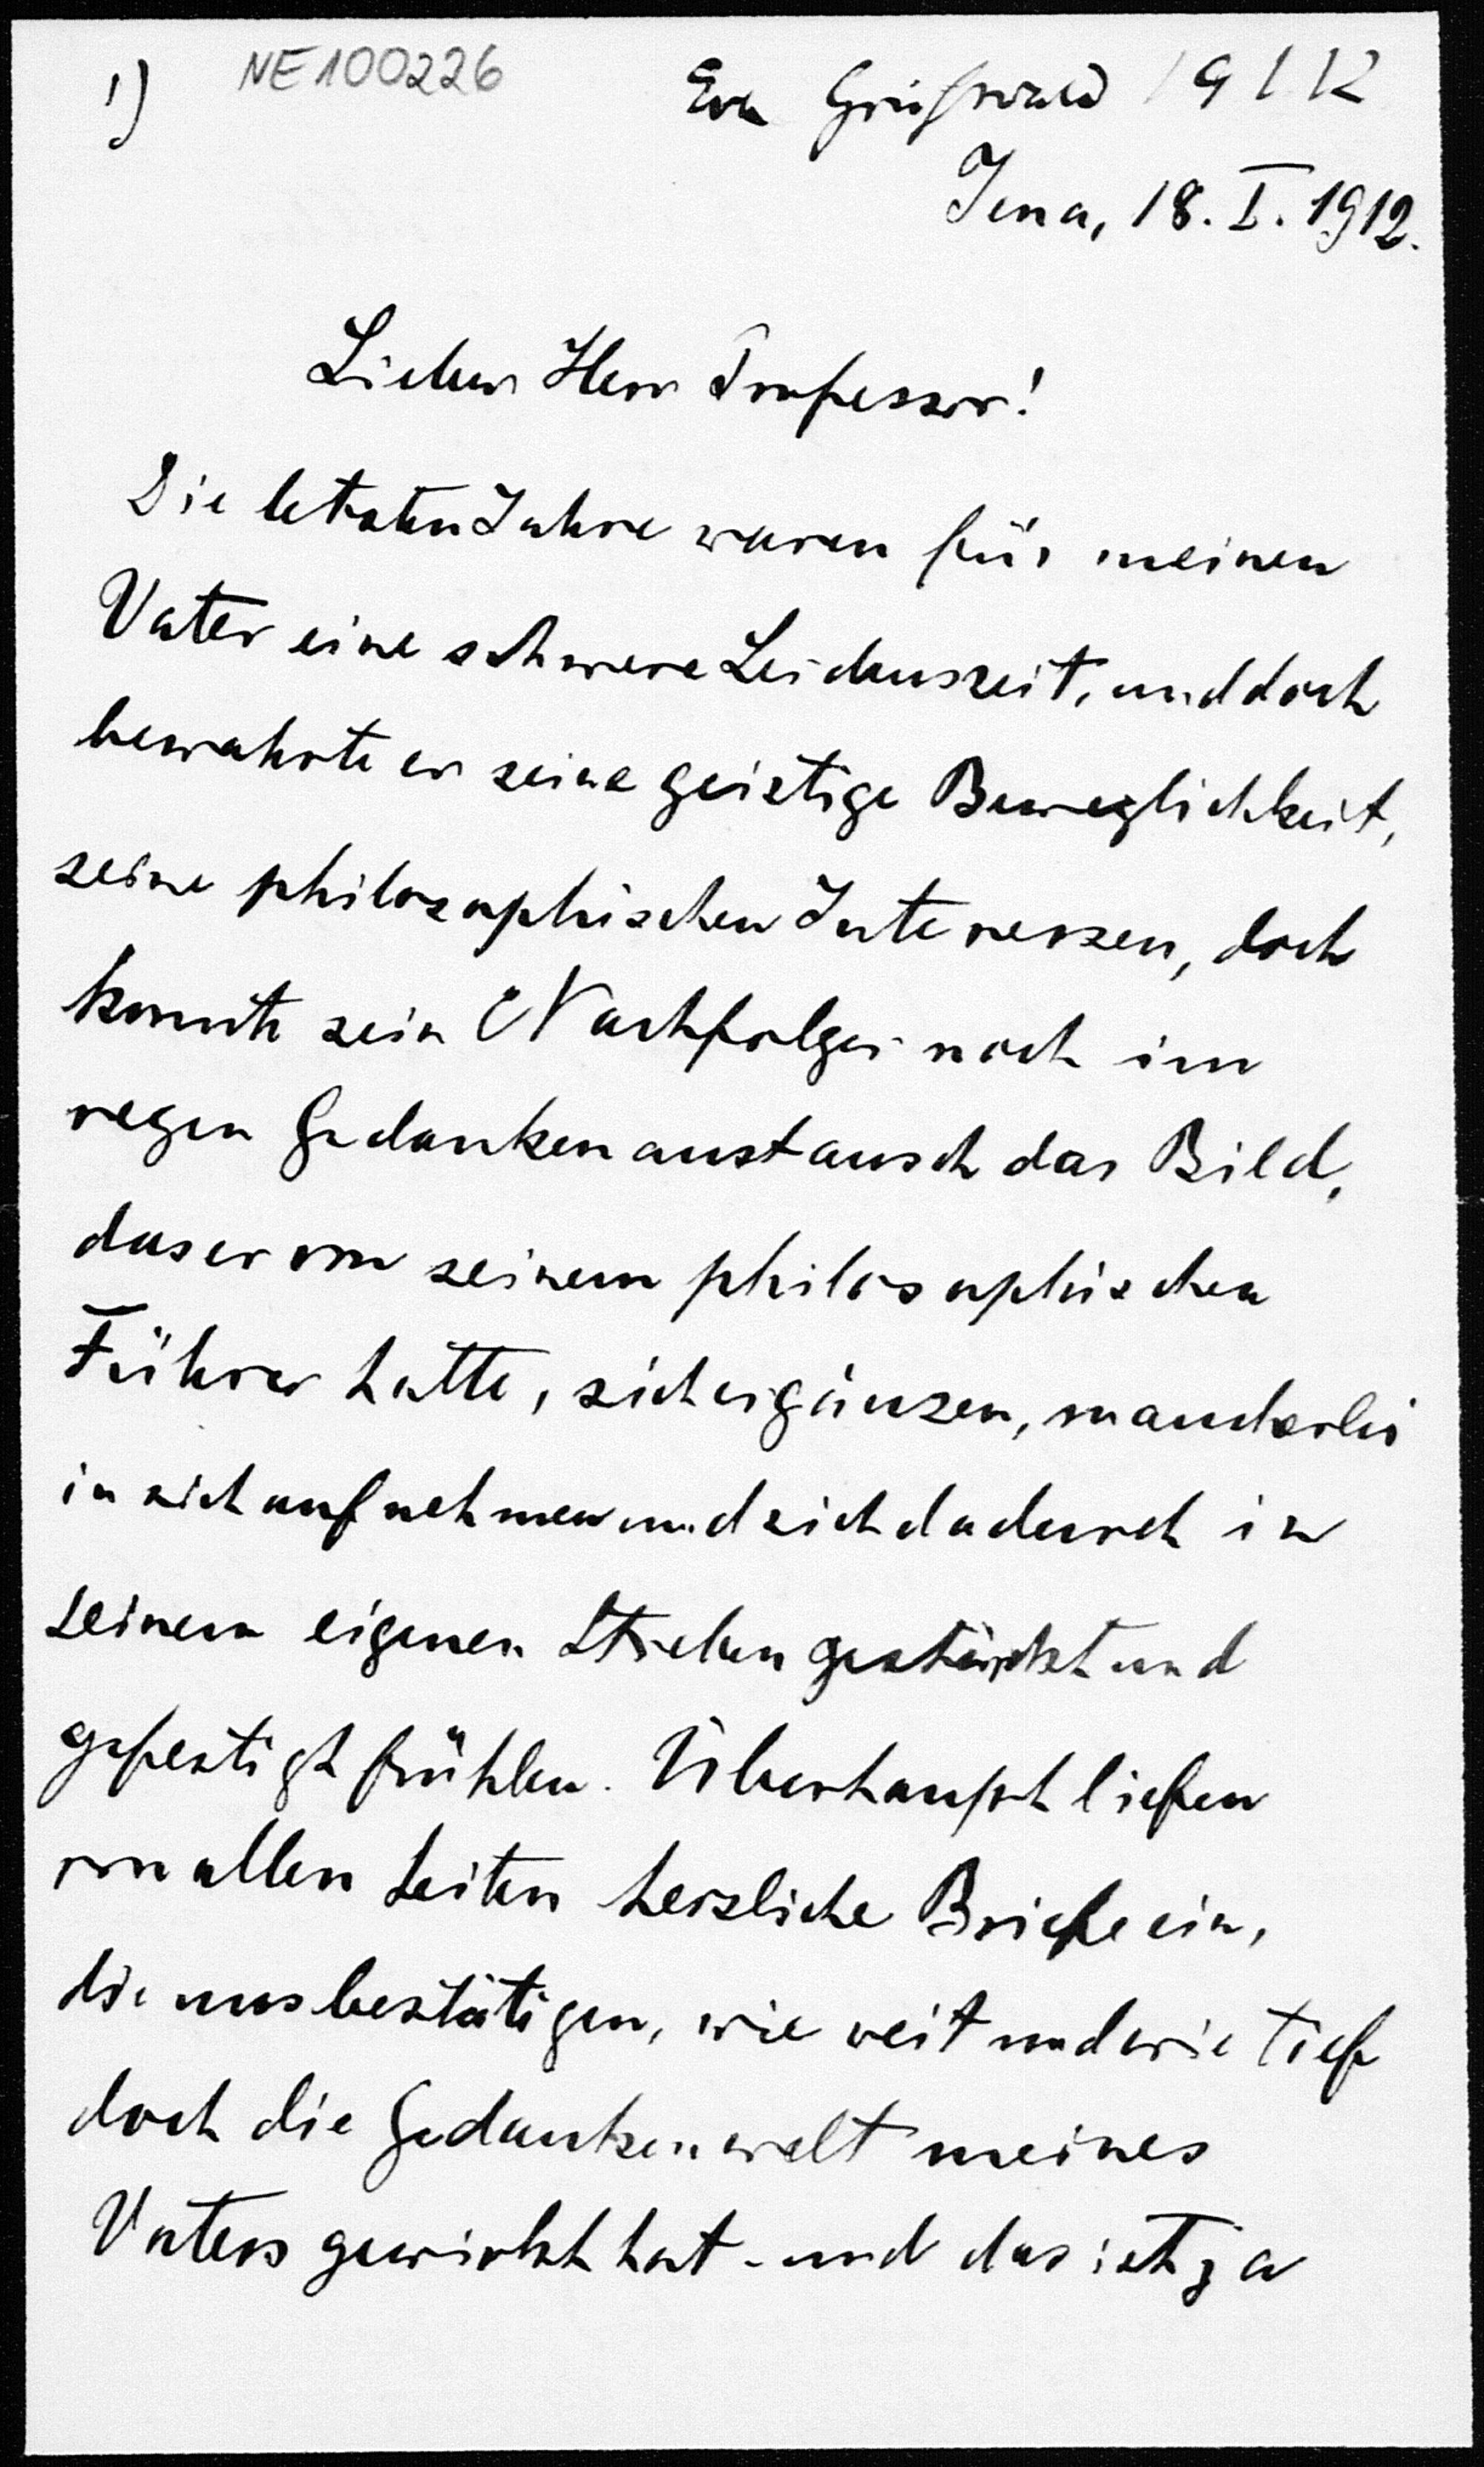 1) NE100226 Eva 1912
Jena, 18. I. 1912.
Lieber Herr Professor!
Die letzten Jahre waren für meinen
Vater eine schwere Leidenszeit, und doch
bewahrte er seine geistige Beweglichkeit,
seine philosophischen Interessen, doch
konnte sein Nachfolger noch im
regen Gedankenaustausch das Bild,
das er von seinem philosophischen
Führer hatte, sich ergänzen, mancherlei
in sich aufnehmen und sich dadurch in
seinem eigenen Streben gestärkt und
gefestigt fühlen. Überhaupt liefen
von allen Seiten herzliche Briefe ein,
die uns bestätigen, wie weit und wie tief
doch die Gedankenwelt meines
Vaters gewirkt hat - und das ist ja